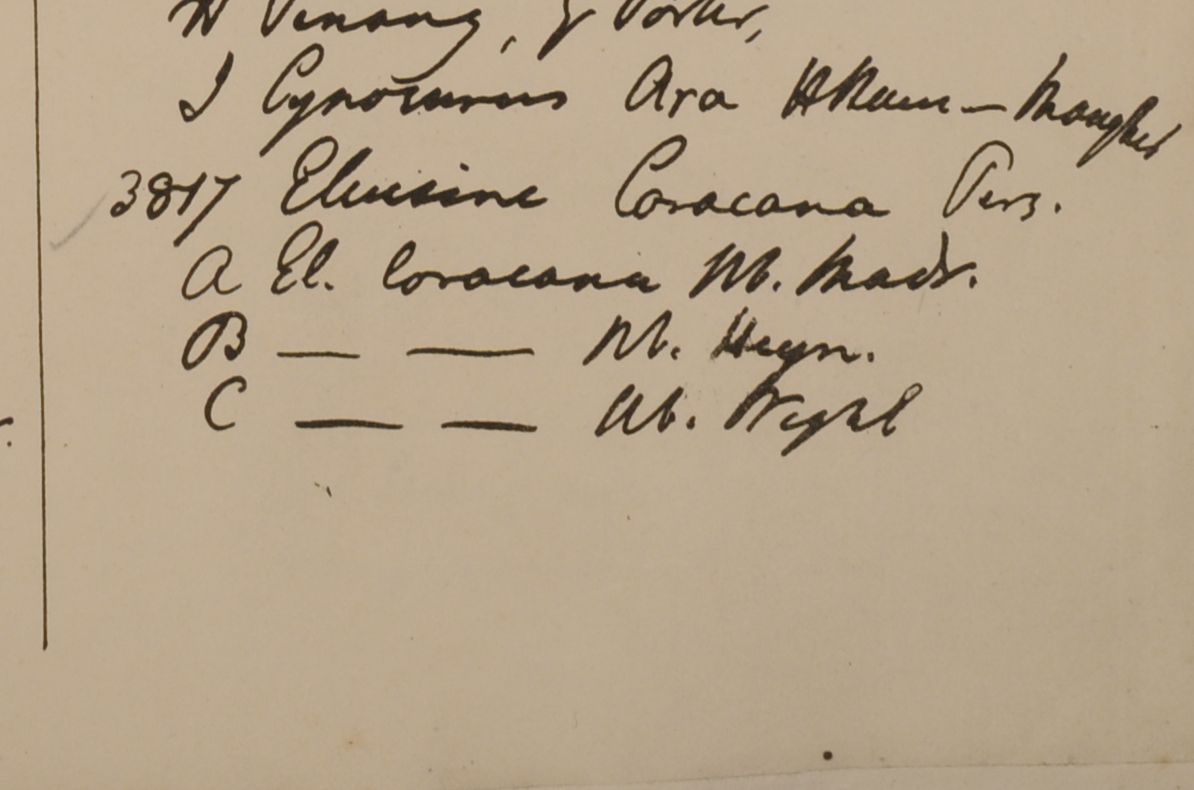 H Penang, G Porter,
I Cynosurus Ara HHam — Mongher
3817 Eleusine Coracana Pers.
A El. Coracana Hb. Madr.
B — — Hb. Heyn.
C — — Hb. Wight